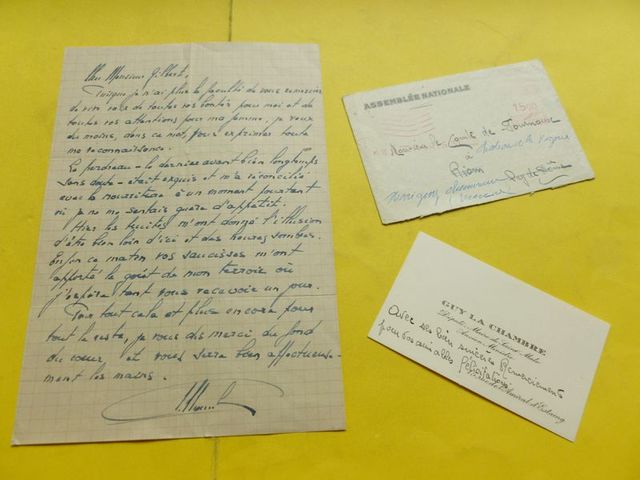 Mon Monsieur Gilbert,
Puisque je n'ai plus la faculté de vous remercier
de vive voix de toutes vos bontés pour moi et de
toutes vos attentions pour ma femme, je veux
du moins, dans ce mot, vous exprimer toute
ma reconnaissance.
Le perdreau - le dernier avant bien longtemps
sans doute - était exquis et m'a réconcilié
avec la nourriture à un moment pourtant
où je ne me sentais guère d'appétit.
Hier les truites m'ont donné l'illusion
d'être bien loin d'ici et des heures sombres.
Enfin ce matin vos saucisses m'ont
apporté le goût de mon terroir où
j'espère tant vous recevoir un jour.
Pour tout cela et plus encore pour
tout le reste, je vous dis merci du fond
du cœur et vous serre bien affectueuse-
ment les mains.
ASSEMBLÉE NATIONALE
Monsieur le Comte de
à
Riom
Puy de Dôme
GUY LA CHAMBRE
Député-Maire de Saint-Malo
Ancien Ministre
Avec ses bien sincères Remerciements
pour vos aimables félicitations